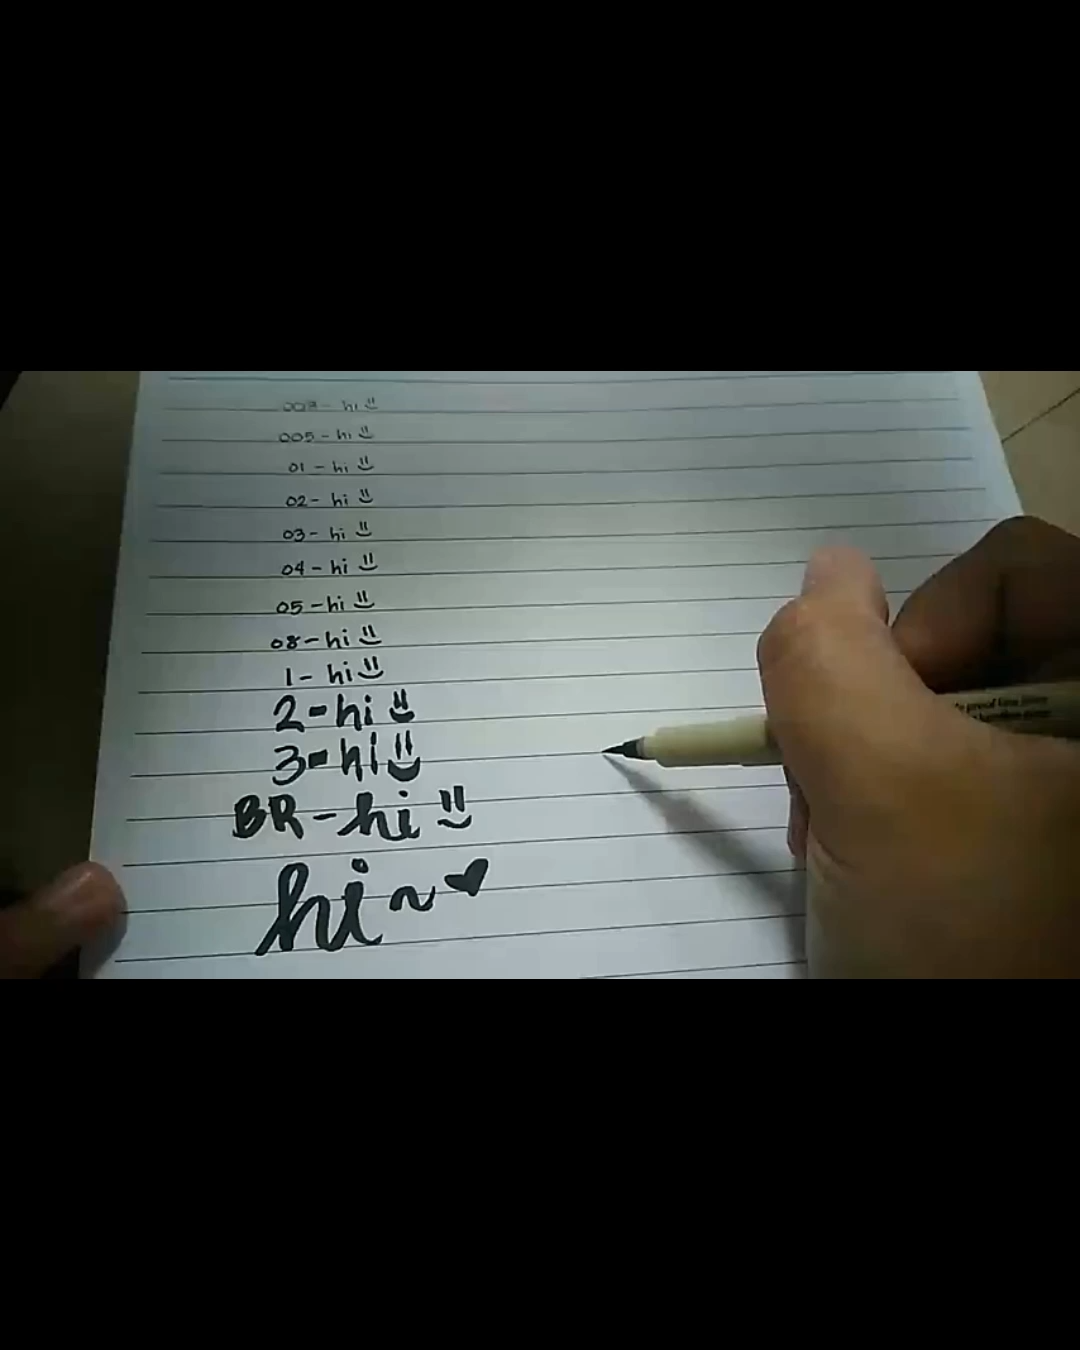 003 - hi
005 - hi
01 - hi
02 - hi
03 - hi
04 - hi
05 - hi
08 - hi
1 - hi
2 - hi
3 - hi
BR - hi
hi ~ ♥
proof